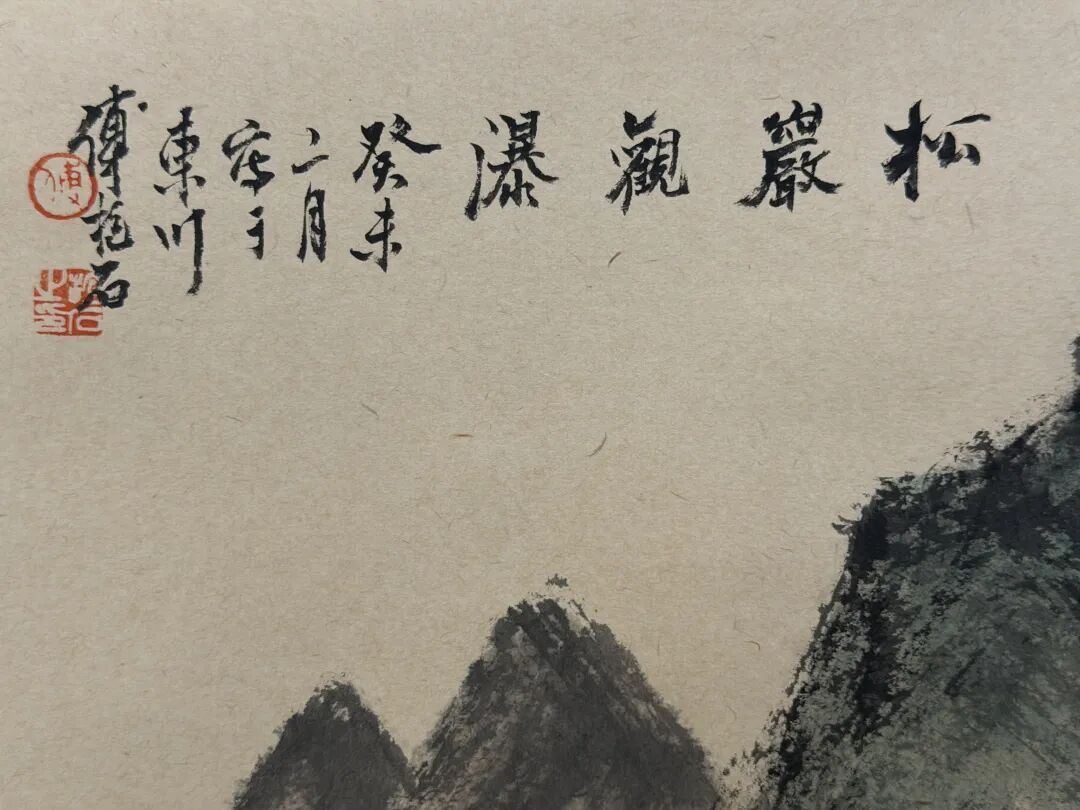 松巖觀瀑
癸未
二月
寫于
東川
傅抱石
傅
抱石之印